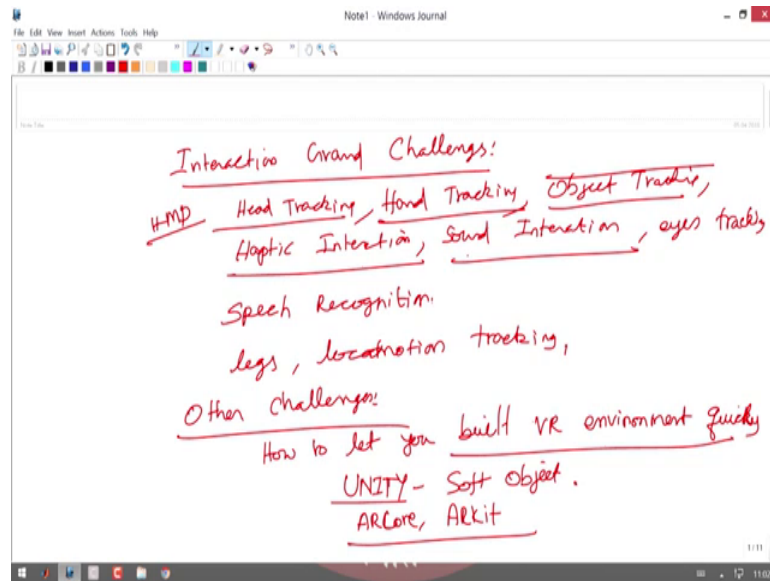 Note1 - Windows Journal
File Edit View Insert Actions Tools Help
B I
Note Title
Interaction Grand Challengs:
HMD Head Tracking, Hand Tracking, Object Trackig,
Haptic Interation, Sound Interation, eyes trackig
Speech Recognition.
legs, locomotion tracking,
Other Challenges:
How to let you built VR environment quickly
UNITY - Soft Object.
ARCore, ARKit
1/11
11:02